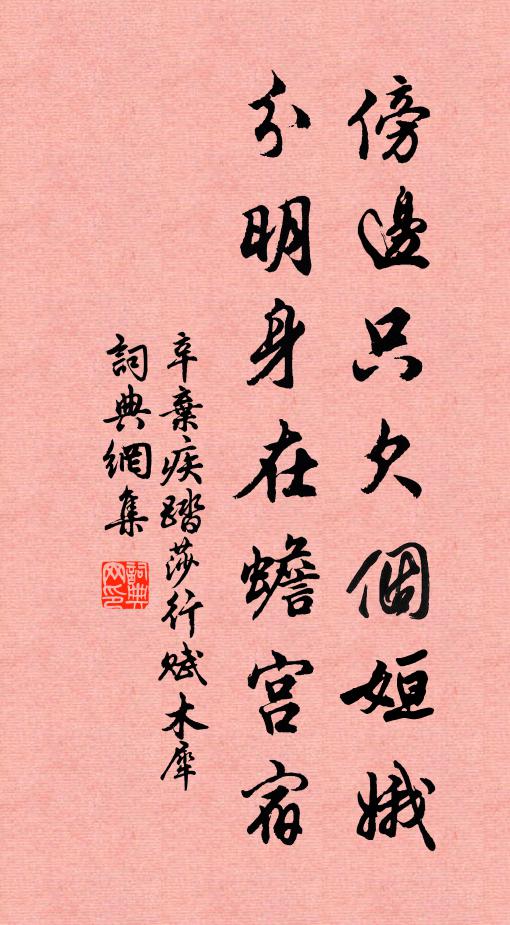 傍邊只欠個姮娥
分明身在蟾宮宿
辛棄疾踏莎行賦木犀
詞典網集
詞典網印